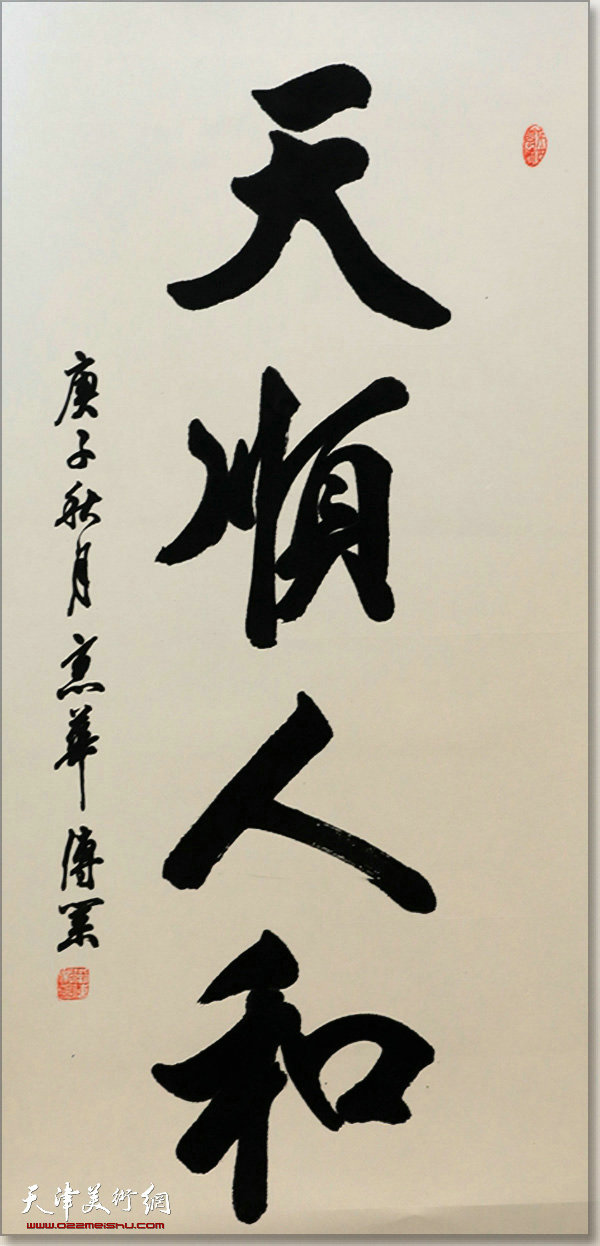 天順人和
庚子秋月
華
天津美術網
www.022meishu.com